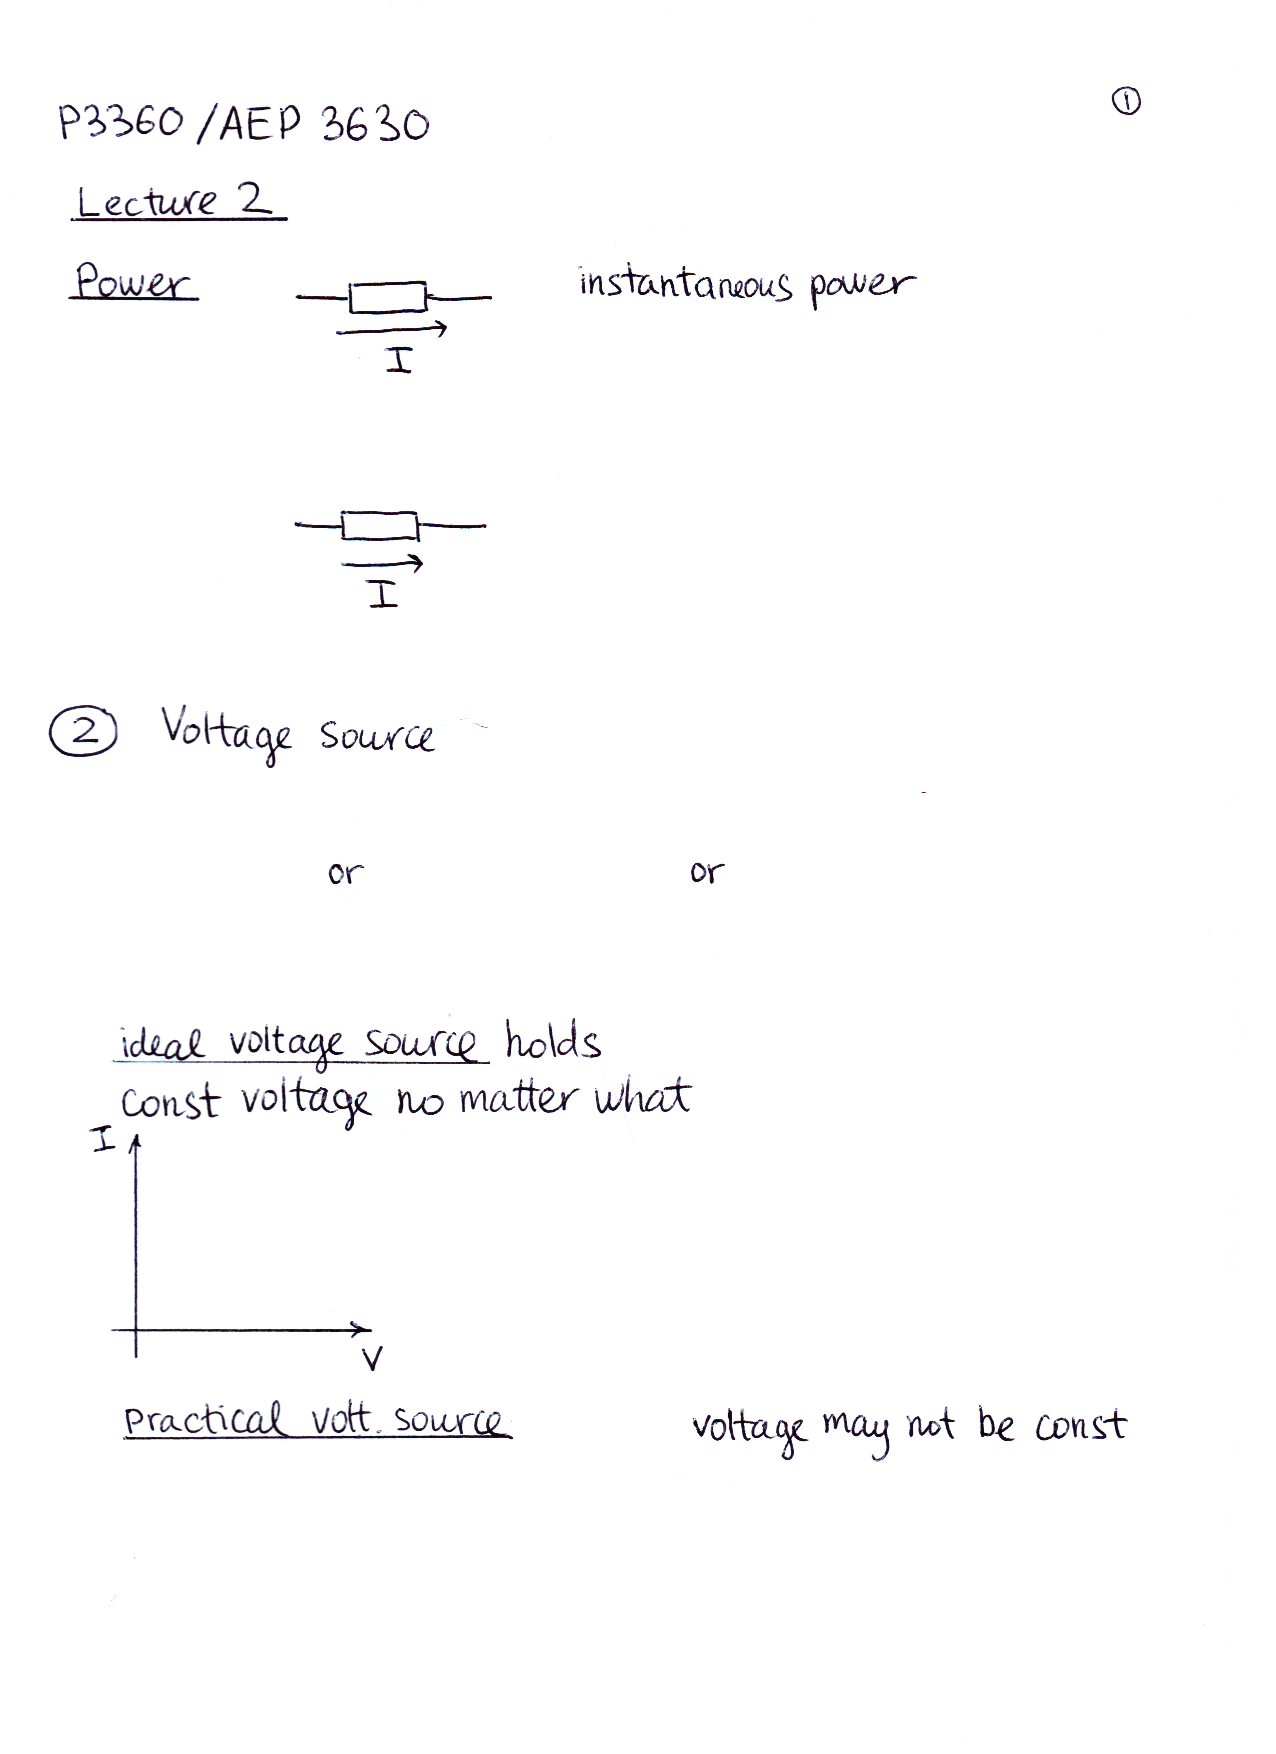 ①
P3360 / AEP 3630
Lecture 2
Power
instantaneous power
I
I
② Voltage source
or or
ideal voltage source holds
const voltage no matter what
I
V
practical volt. source voltage may not be const